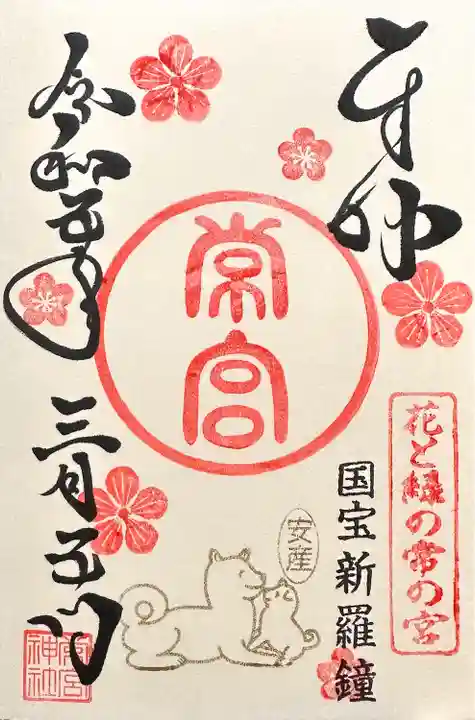 奉拝
花と緑の常の宮
国宝新羅鐘
常宮
安産
令和五年
三月五日
常宮神社